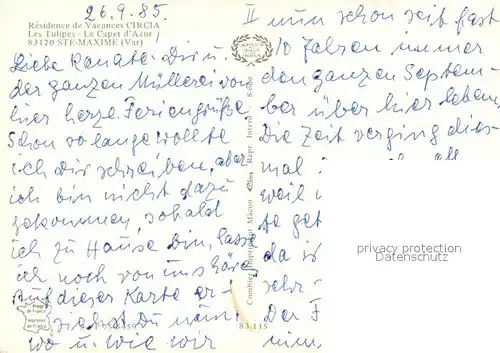 26.9.85.
Résidence de Vacances CIRCIA
Les Tulipes - Le Capet d'Azur
83120 STE-MAXIME (Var)
Liebe Renate! Dir u.
der ganzen Müllerei von
hier herzl. Feriengrüße
Schon so lange wollte
ich dir schreiben, aber
ich bin nicht dazu
gekommen, sobald
ich zu Hause bin, lasse
ich noch von uns hören
Auf dieser Karte er-
siehst Du nun
wo u. wie wir
83.115
Combier Imprimeur Mâcon
II nun schon seit fast
10 Jahren immer
den ganzen Septem-
ber über hier leben.
Die Zeit verging dies-
mal
weil
da
Der
privacy protection
OLDTHING